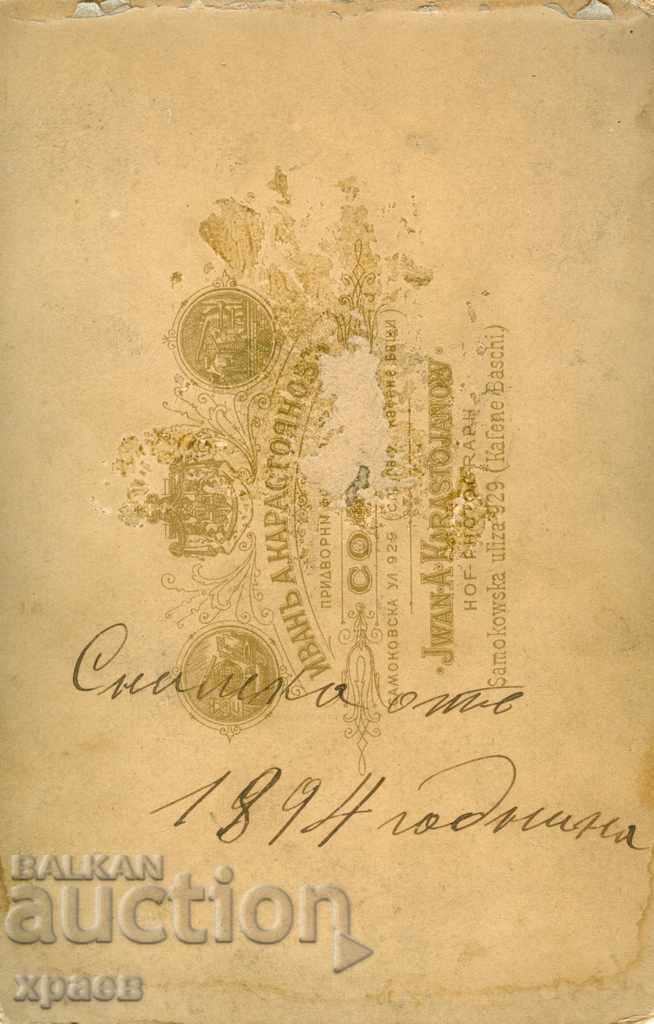 ИВАНЪ А. КАРАСТОЯНОВЪ
ПРИДВОРНИ
СО
САМОКОВСКА УЛ 929 КАФЕНЕ БАШИ
JWAN A. KARASTOJANOW.
HOF-PHOTOGRAPH
Samokowska uliza 929 (Kafene Baschi)
Снимка отъ
1894 година
BALKAN
auction
храсв